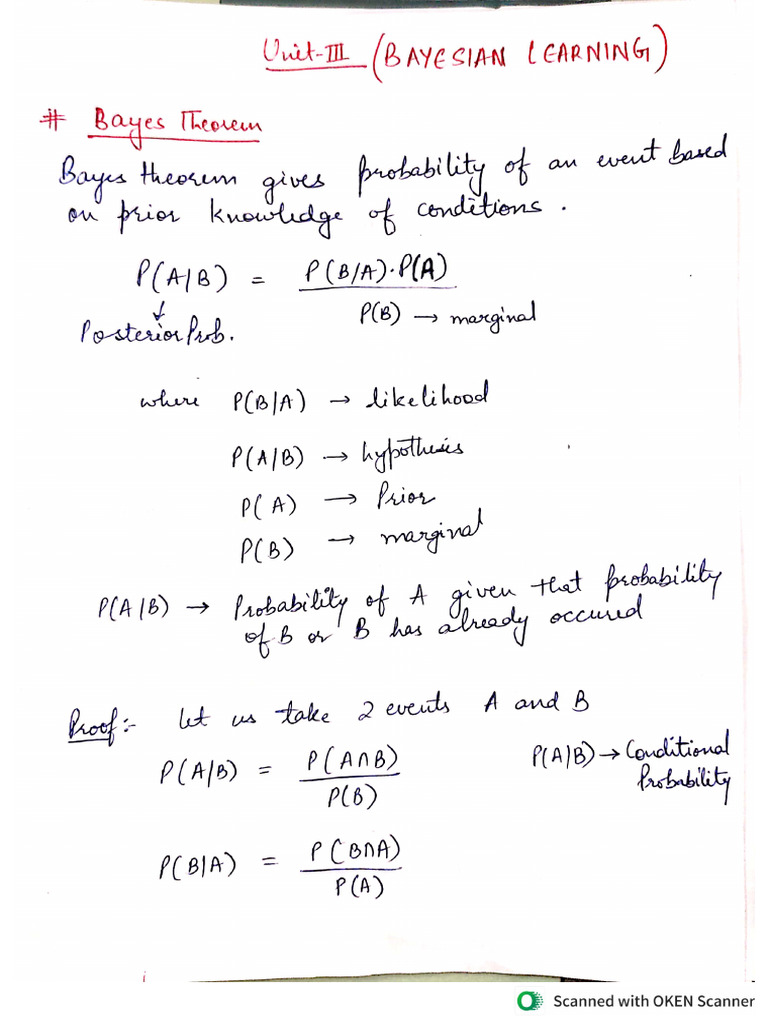 Unit-III (BAYESIAN LEARNING)
# Bayes Theorem
Bayes theorem gives probability of an event based
on prior knowledge of conditions.
P(A/B) = P(B/A).P(A)
P(B) → marginal
↓
Posterior Prob.
where P(B|A) → likelihood
P(A/B) → hypothesis
P(A) → Prior
P(B) → marginal
P(A/B) → Probability of A given that probability
of B or B has already occured
Proof:- let us take 2 events A and B
P(A/B) = P(A∩B)
P(B)
P(A|B) → Conditional
Probability
P(B|A) = P(B∩A)
P(A)
Scanned with OKEN Scanner